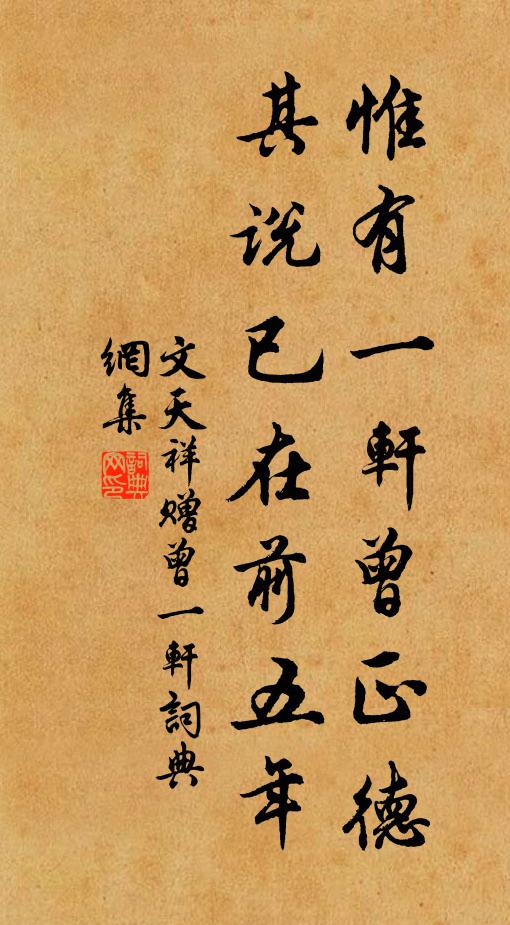 惟有一軒曾正德
其說已在前五年
文天祥贈曾一軒詞典
網集
詞典
网印